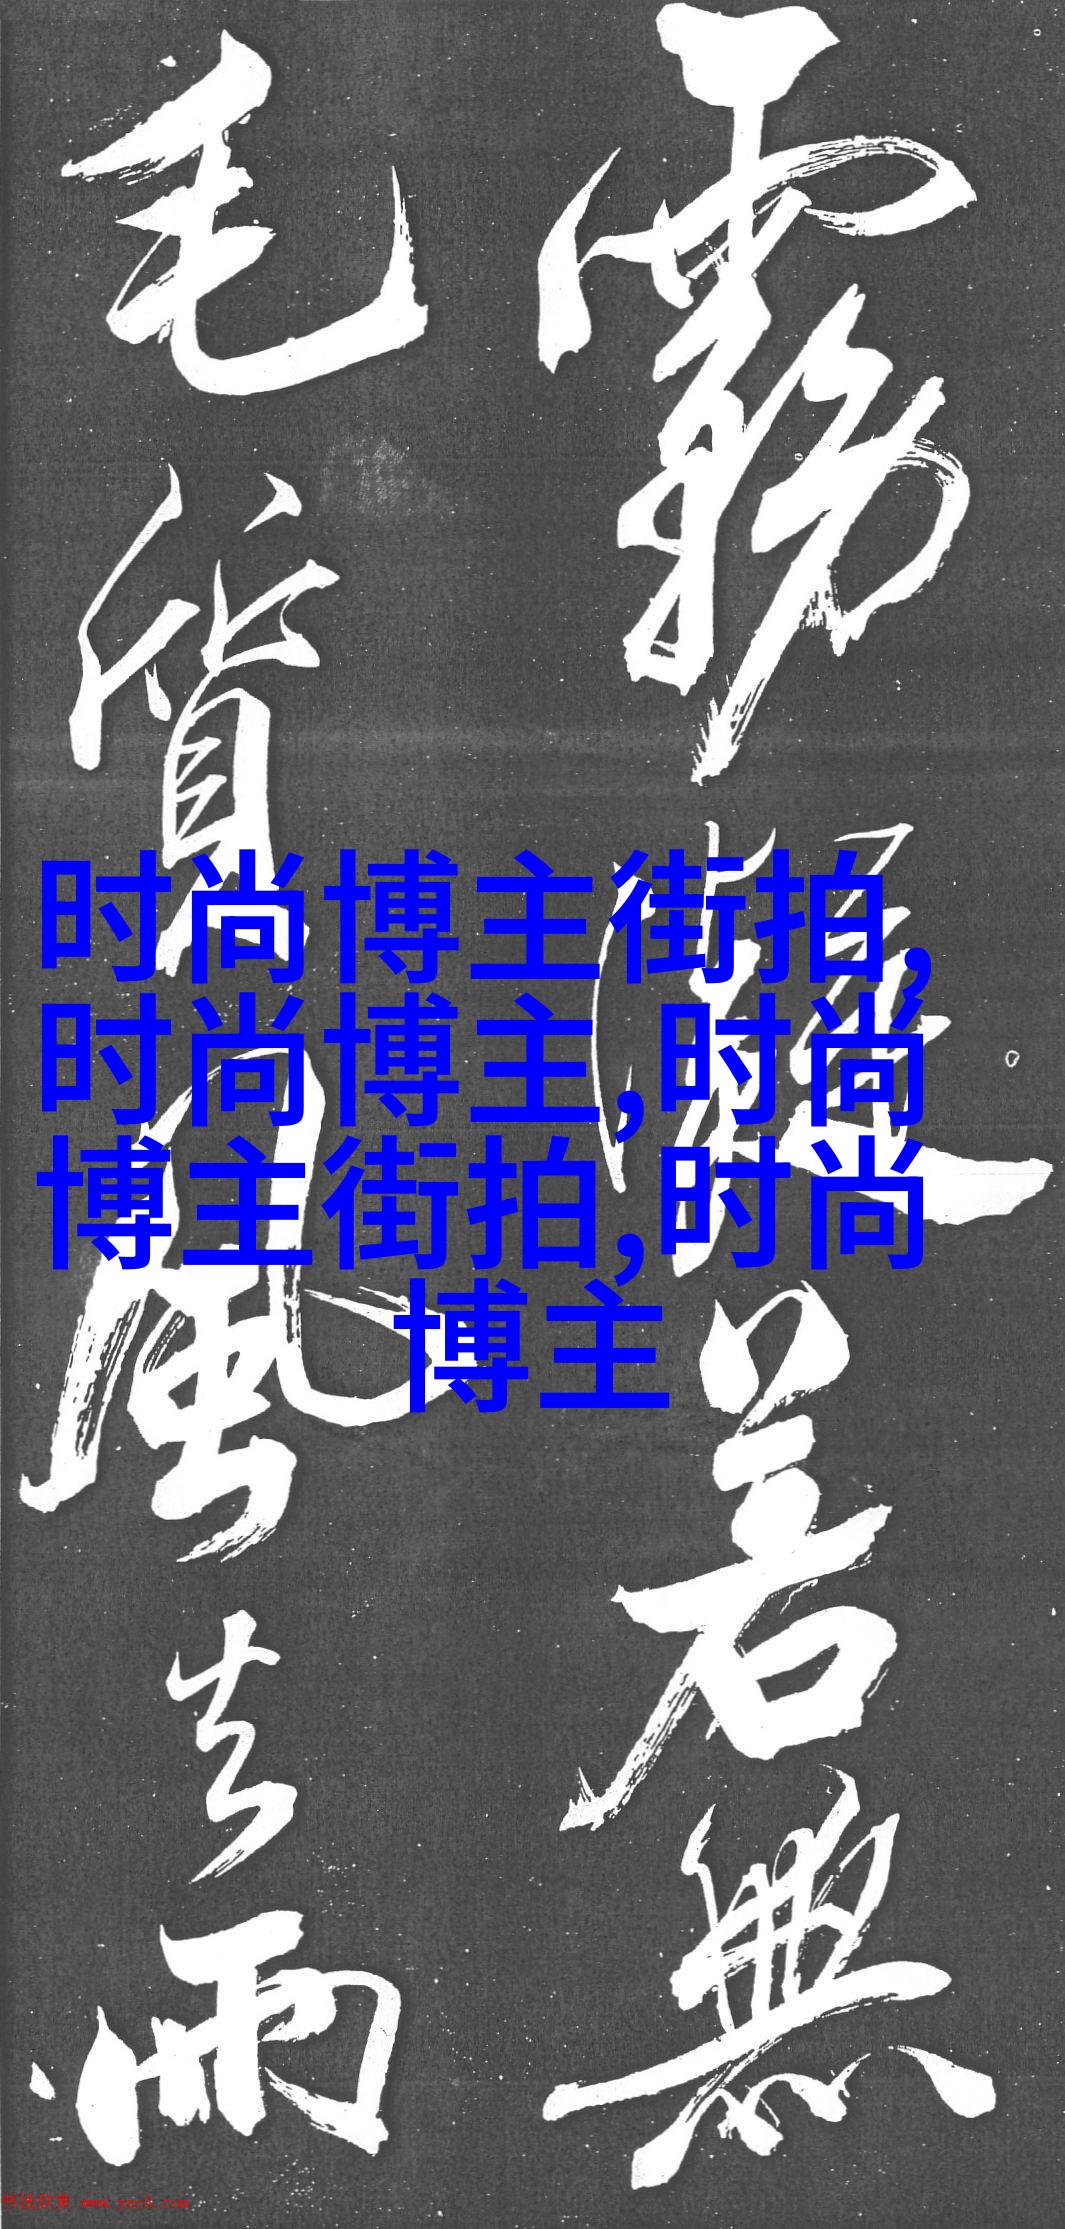 霧凝若無
毛質風去雨
时尚博主街拍,
时尚博主,时尚
博主街拍,时尚
博主
书法欣赏 www.yac8.com